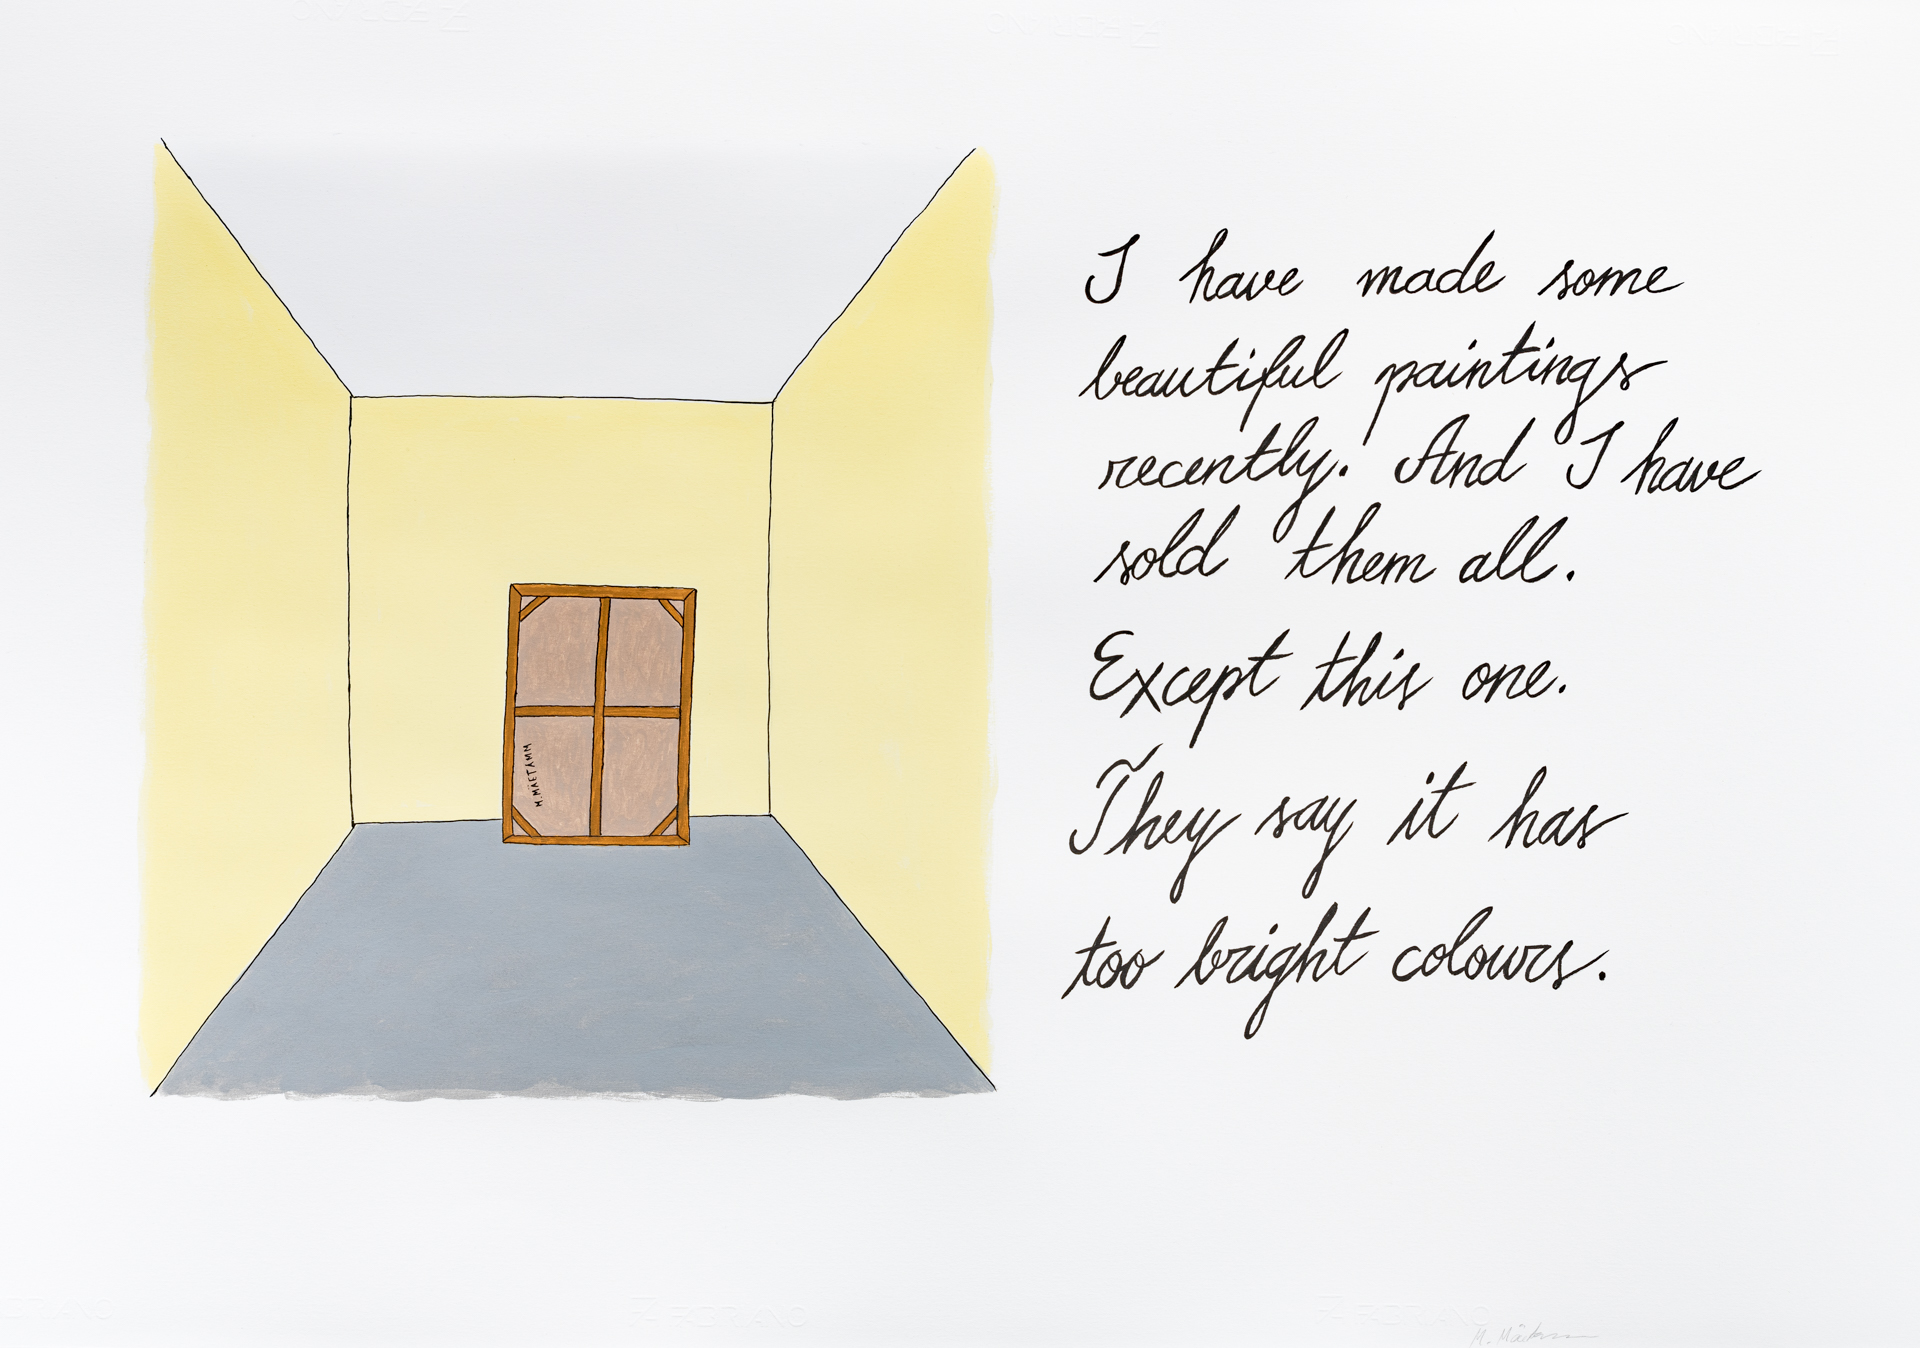 I have made some
beautiful paintings
recently. And I have
sold them all.
Except this one.
They say it has
too bright colours.
M. MÄETAMM
FABRIANO
FABRIANO